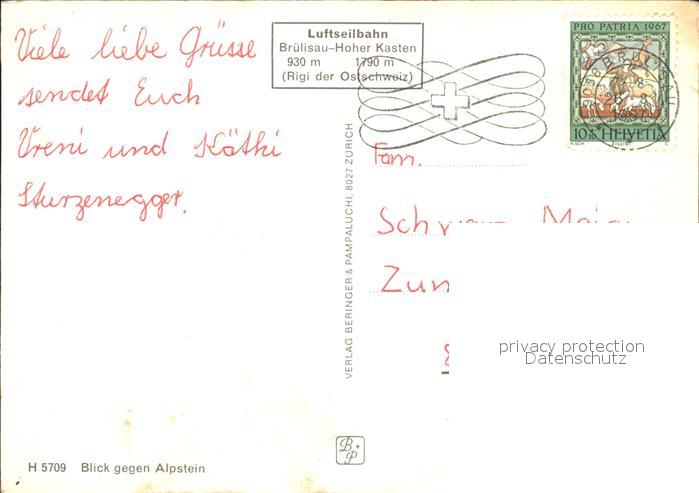 Viele liebe Grüsse
sendet Euch
Vreni und Käthi
Sturzenegger.
Luftseilbahn
Brülisau–Hoher Kasten
930 m 1790 m
(Rigi der Ostschweiz)
PRO PATRIA 1967
10+ HELVETIA
H.SCH. ZILLIS C
Fam.
VERLAG BERINGER & PAMPALUCHI, 8027 ZÜRICH
privacy protection
Datenschutz
B+P
H 5709 Blick gegen Alpstein